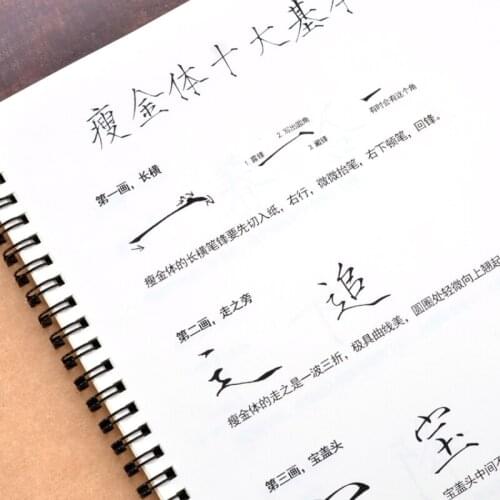 瘦金体十大基本
第一画，长横
1.露锋
2.写出圆角
3.藏锋
有时会有这个角
瘦金体的长横笔锋要先切入纸，右行，微微抬笔，右下顿笔，回锋。
第二画，走之旁
辶 追
瘦金体的走之是一波三折，极具曲线美，圆圈处轻微向上翘起
第三画，宝盖头
宝
宝盖头中间不